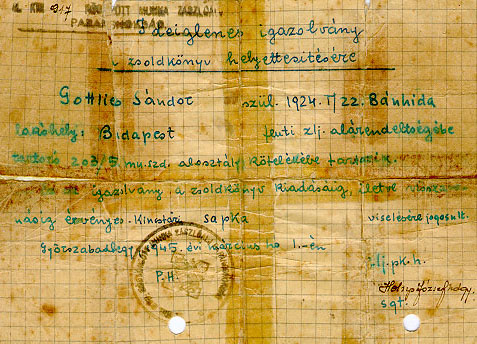 M. KIR. 217 MUNKA ZÁSZLÓALJ
PARANCSNOKSÁG
Ideiglenes igazolvány
a zsoldkönyv helyettesitésére
Gottlieb Sándor szül. 1924. I/22. Bánhida
lakóhely: Budapest fenti zlj. alárendeltségébe
tartozó 203/5 mu. szd. alosztály kötelékébe tartozik.
igazolvány a zsoldkönyv kiadásáig, illetve vissza
násig érvényes. Kincstári sapka viselésére jogosult.
Győrszabadhegy, 1945. évi március hó 1.-én
P.H. zlj. pk. h.
József hdgy.
sgt.